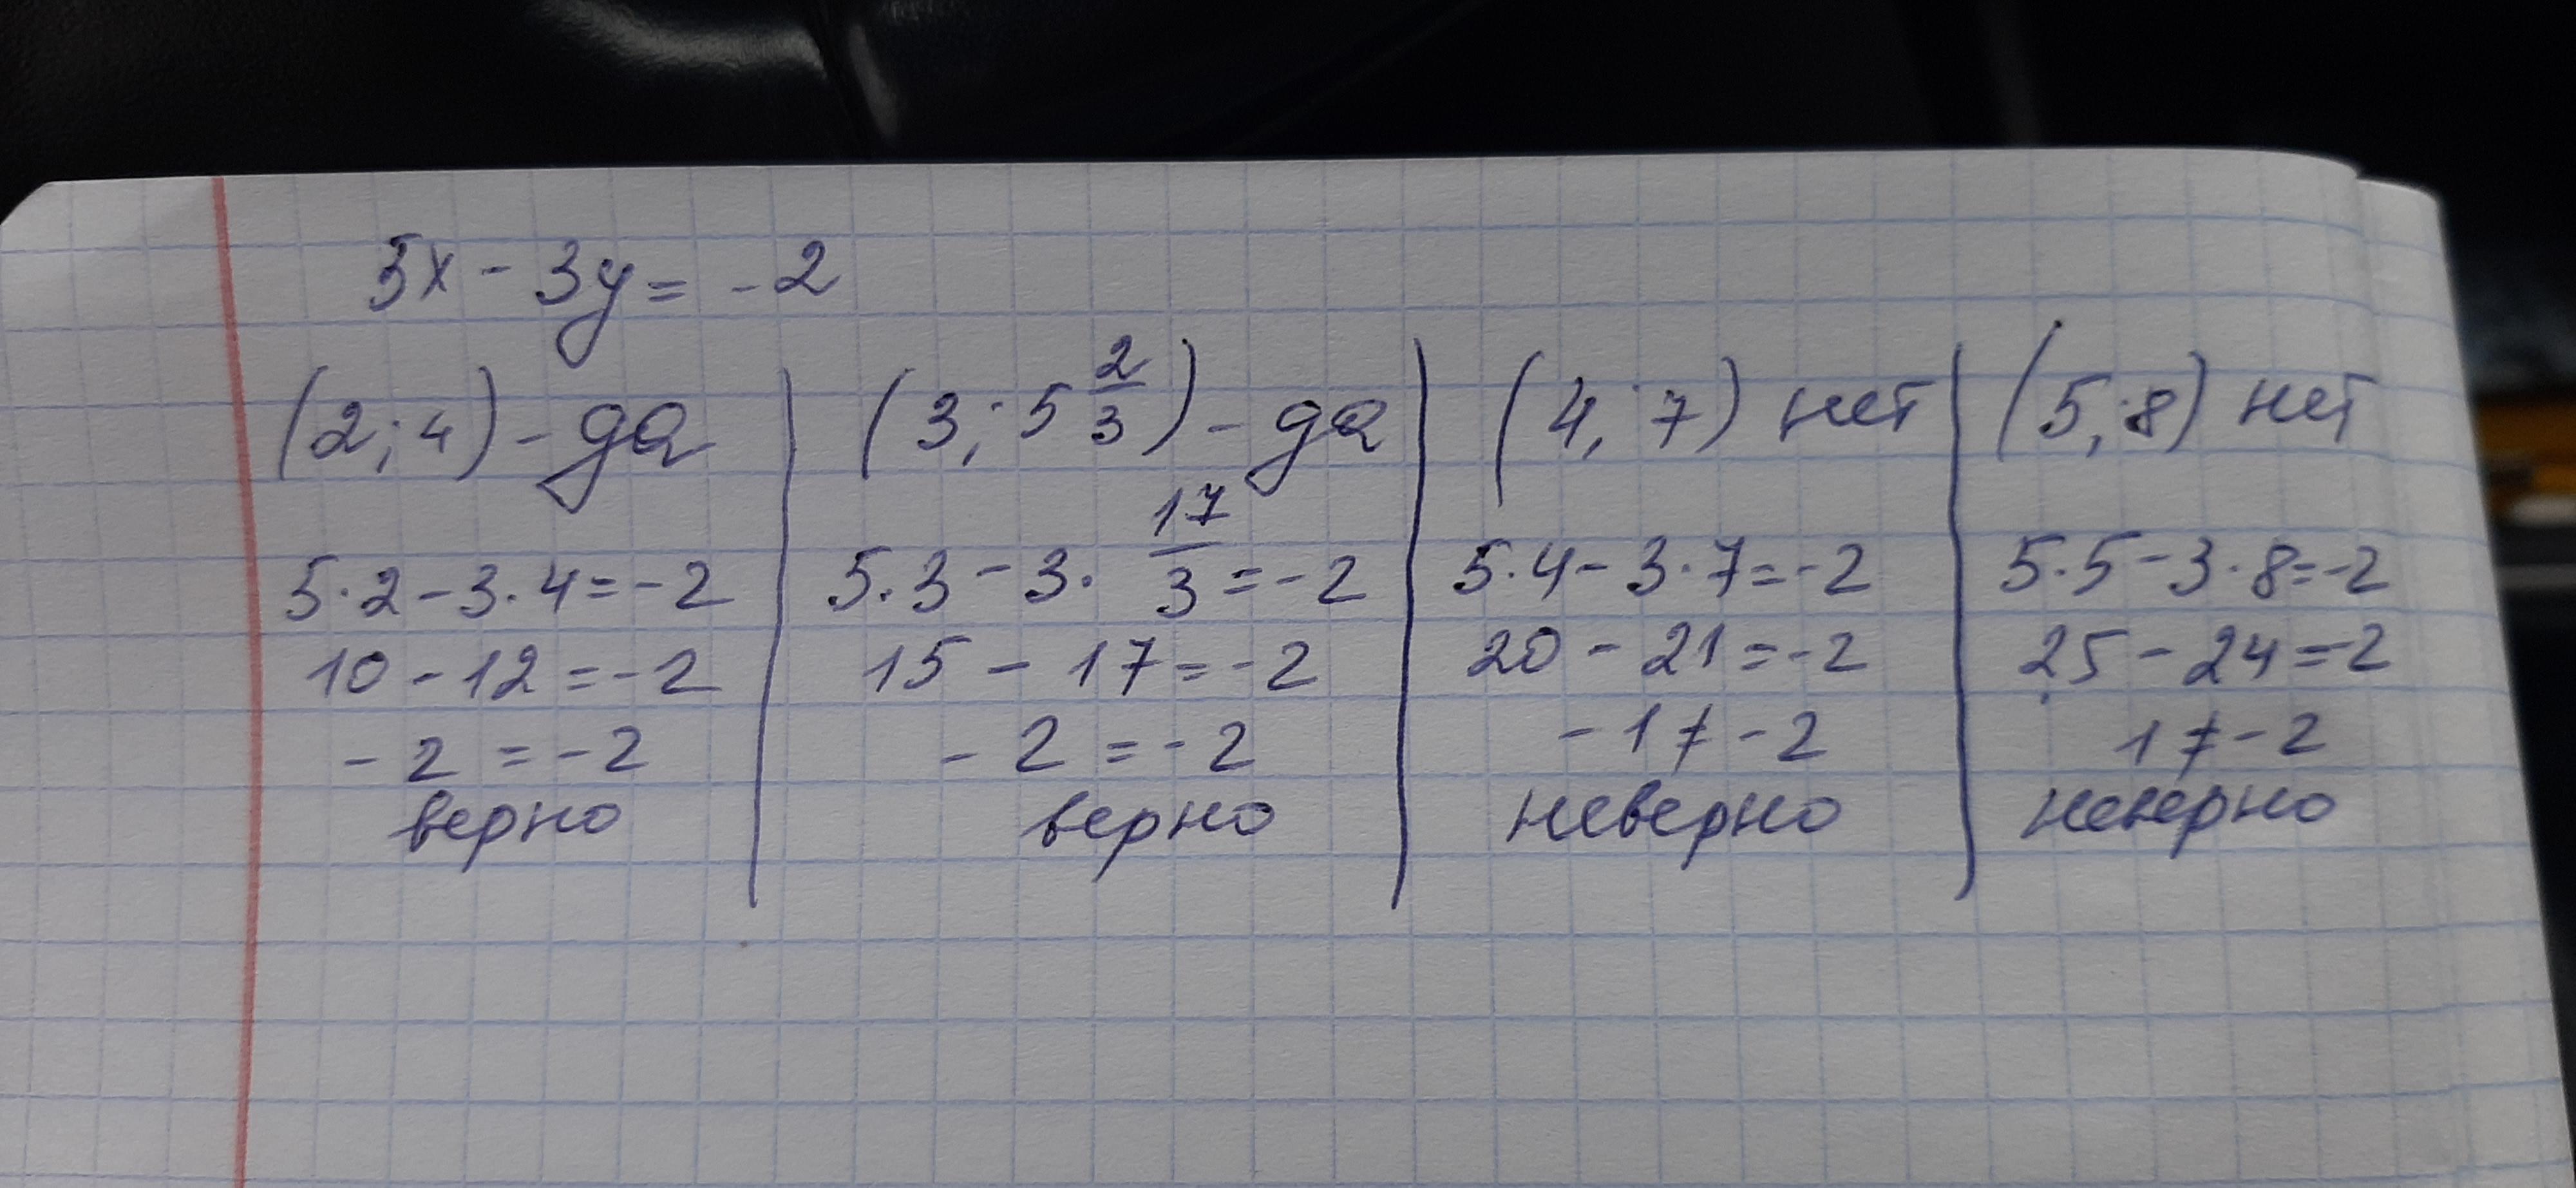 5x - 3y = -2
(2; 4) - да
5·2 - 3·4 = -2
10 - 12 = -2
-2 = -2
верно
(3; 5 2/3) - да
5·3 - 3· 17/3 = -2
15 - 17 = -2
-2 = -2
верно
(4; 7) нет
5·4 - 3·7 = -2
20 - 21 = -2
-1 ≠ -2
неверно
(5; 8) нет
5·5 - 3·8 = -2
25 - 24 = -2
1 ≠ -2
неверно